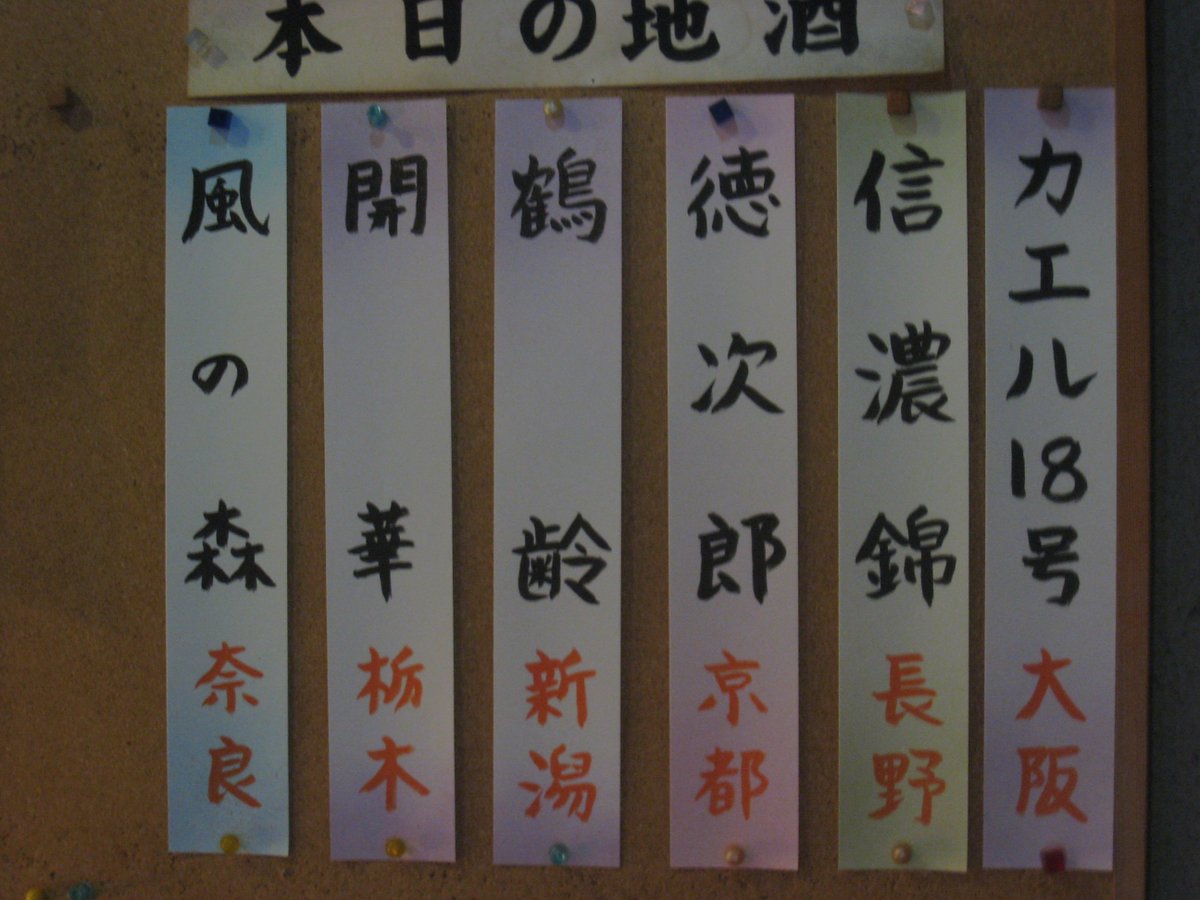 本日の地酒
カエル18号 大阪
信濃錦 長野
徳次郎 京都
鶴齢 新潟
開華 栃木
風の森 奈良